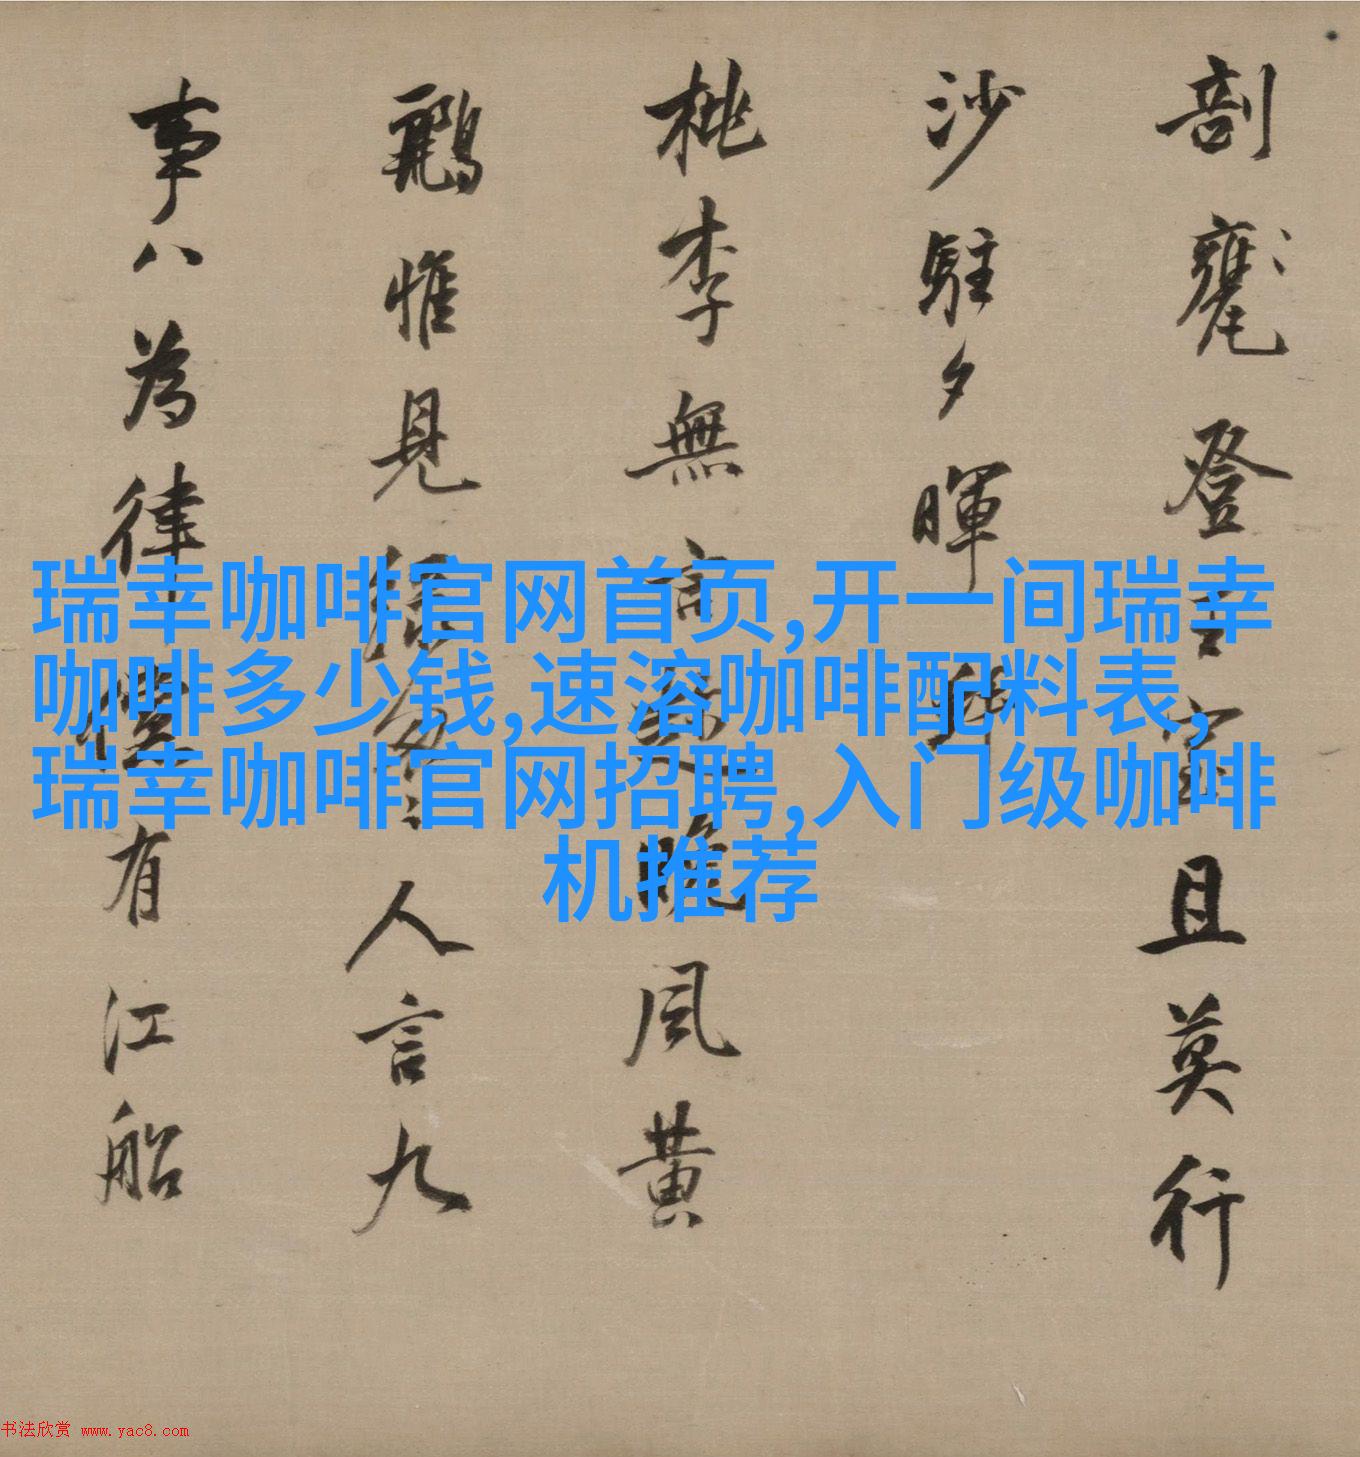 剖甕登且莫行
沙駐夕暉
桃李無言晚風黃
鸝惟見人言九
事八為律有江船
瑞幸咖啡官网首页,开一间瑞幸
咖啡多少钱,速溶咖啡配料表,
瑞幸咖啡官网招聘,入门级咖啡
机推荐
书法欣赏 www.yac8.com